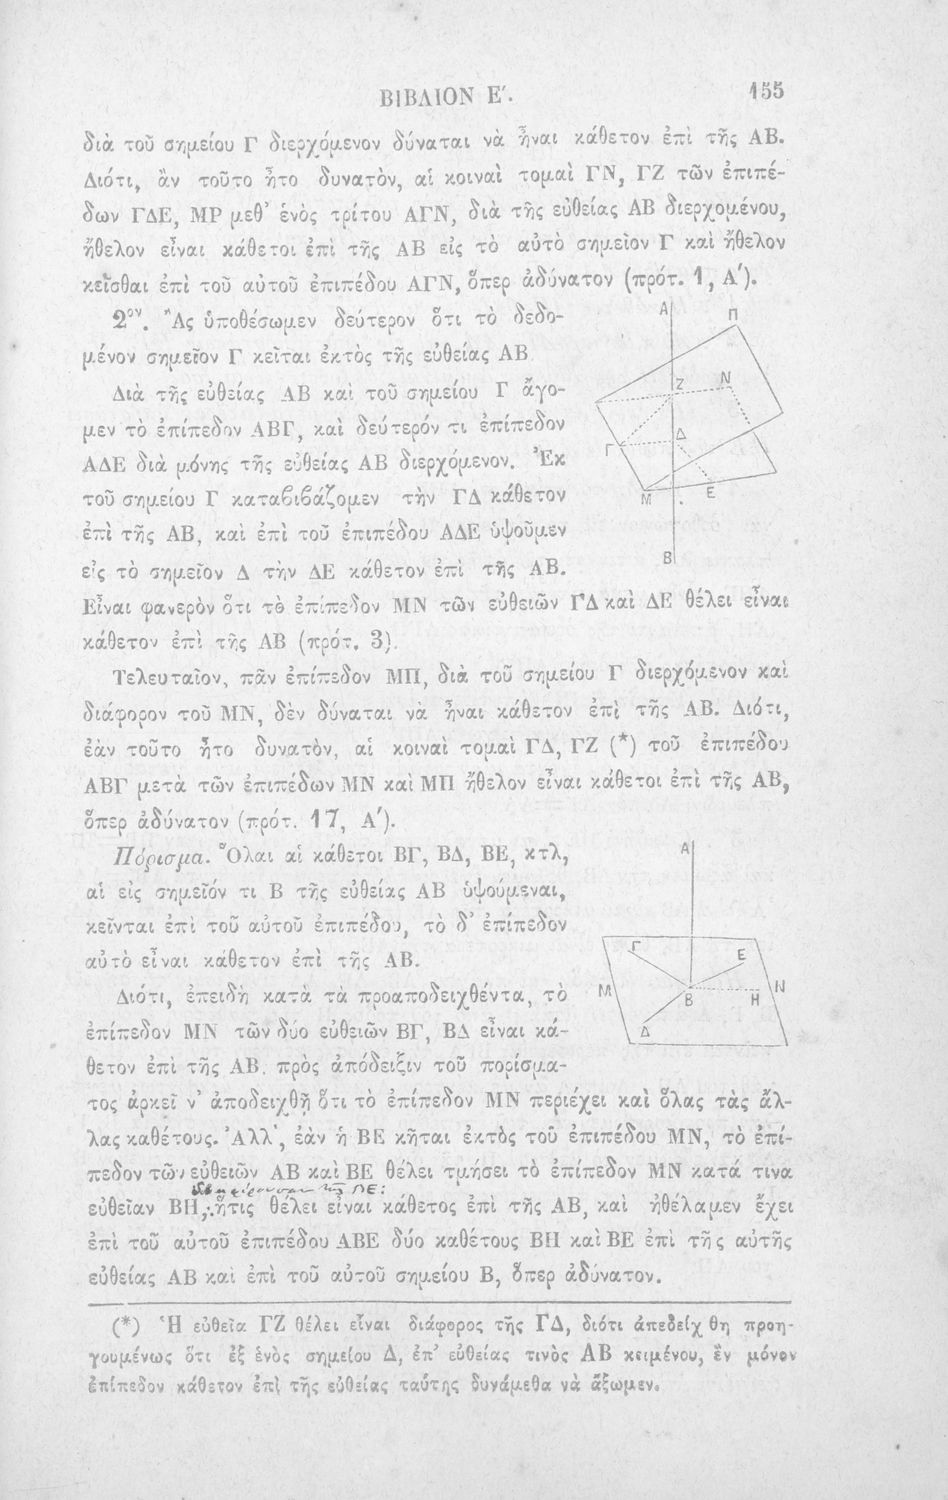 ΒΙΒΛΙΟΝ Ε΄.
155
διὰ τοῦ σημείου Γ διερχόμενον δύναται νὰ ἦναι κάθετον ἐπὶ τῆς ΑΒ.
Διότι, ἂν τοῦτο ἦτο δυνατὸν, αἱ κοιναὶ τομαὶ ΓΝ, ΓΖ τῶν ἐπιπέ-
δων ΓΔΕ, ΜΡ μεθ' ἑνὸς τρίτου ΑΓΝ, διὰ τῆς εὐθείας ΑΒ διερχομένου,
ἤθελον εἶναι κάθετοι ἐπὶ τῆς ΑΒ εἰς τὸ αὐτὸ σημεῖον Γ καὶ ἤθελον
κεῖσθαι ἐπὶ τοῦ αὐτοῦ ἐπιπέδου ΑΓΝ, ὅπερ ἀδύνατον (πρότ. 1, Α΄).
2ον. Ἂς ὑποθέσωμεν δεύτερον ὅτι τὸ δεδο-
μένον σημεῖον Γ κεῖται ἐκτὸς τῆς εὐθείας ΑΒ
Διὰ τῆς εὐθείας ΑΒ καὶ τοῦ σημείου Γ ἄγο-
μεν τὸ ἐπίπεδον ΑΒΓ, καὶ δεύτερόν τι ἐπίπεδον
ΑΔΕ διὰ μόνης τῆς εὐθείας ΑΒ διερχόμενον. Ἐκ
τοῦ σημείου Γ καταβιβάζομεν τὴν ΓΔ κάθετον
ἐπὶ τῆς ΑΒ, καὶ ἐπὶ τοῦ ἐπιπέδου ΑΔΕ ὑψοῦμεν
εἰς τὸ σημεῖον Δ τὴν ΔΕ κάθετον ἐπὶ τῆς ΑΒ.
Α
Π
Ζ
Ν
Γ
Δ
Μ
Ε
Β
Εἶναι φανερὸν ὅτι τὸ ἐπίπεδον ΜΝ τῶν εὐθειῶν ΓΔ καὶ ΔΕ θέλει εἶναι
κάθετον ἐπὶ τῆς ΑΒ (πρότ. 3).
Τελευταῖον, πᾶν ἐπίπεδον ΜΠ, διὰ τοῦ σημείου Γ διερχόμενον καὶ
διάφορον τοῦ ΜΝ, δὲν δύναται νὰ ἦναι κάθετον ἐπὶ τῆς ΑΒ. Διότι,
ἐὰν τοῦτο ἦτο δυνατὸν, αἱ κοιναὶ τομαὶ ΓΔ, ΓΖ (*) τοῦ ἐπιπέδου
ΑΒΓ μετὰ τῶν ἐπιπέδων ΜΝ καὶ ΜΠ ἤθελον εἶναι κάθετοι ἐπὶ τῆς ΑΒ,
ὅπερ ἀδύνατον (πρότ. 17, Α΄).
Πόρισμα. Ὅλαι αἱ κάθετοι ΒΓ, ΒΔ, ΒΕ, κτλ,
αἱ εἰς σημεῖόν τι Β τῆς εὐθείας ΑΒ ὑψούμεναι,
κεῖνται ἐπὶ τοῦ αὐτοῦ ἐπιπέδου, τὸ δ' ἐπίπεδον
αὐτὸ εἶναι κάθετον ἐπὶ τῆς ΑΒ.
Διότι, ἐπειδὴ κατὰ τὰ προαποδειχθέντα, τὸ
ἐπίπεδον ΜΝ τῶν δύο εὐθειῶν ΒΓ, ΒΔ εἶναι κά-
θετον ἐπὶ τῆς ΑΒ. πρὸς ἀπόδειξιν τοῦ πορίσμα-
Α
Γ
Ε
Μ
Β
Η
Ν
Δ
τος ἀρκεῖ ν' ἀποδειχθῇ ὅτι τὸ ἐπίπεδον ΜΝ περιέχει καὶ ὅλας τὰς ἄλ-
λας καθέτους. Ἀλλ', ἐὰν ἡ ΒΕ κῆται ἐκτὸς τοῦ ἐπιπέδου ΜΝ, τὸ ἐπί-
πεδον τῶν εὐθειῶν ΑΒ καὶ ΒΕ θέλει τμήσει τὸ ἐπίπεδον ΜΝ κατά τινα
εὐθεῖαν ΒΗ, ἥτις θέλει εἶναι κάθετος ἐπὶ τῆς ΑΒ, καὶ ἠθέλαμεν ἔχει
ἐπὶ τοῦ αὐτοῦ ἐπιπέδου ΑΒΕ δύο καθέτους ΒΗ καὶ ΒΕ ἐπὶ τῆς αὐτῆς
εὐθείας ΑΒ καὶ ἐπὶ τοῦ αὐτοῦ σημείου Β, ὅπερ ἀδύνατον.
(*) Ἡ εὐθεῖα ΓΖ θέλει εἶναι διάφορος τῆς ΓΔ, διότι ἀπεδείχθη προη-
γουμένως ὅτι ἐξ ἑνὸς σημείου Δ, ἐπ' εὐθείας τινὸς ΑΒ κειμένου, ἓν μόνον
ἐπίπεδον κάθετον ἐπὶ τῆς εὐθείας ταύτης δυνάμεθα νὰ ἄξωμεν.